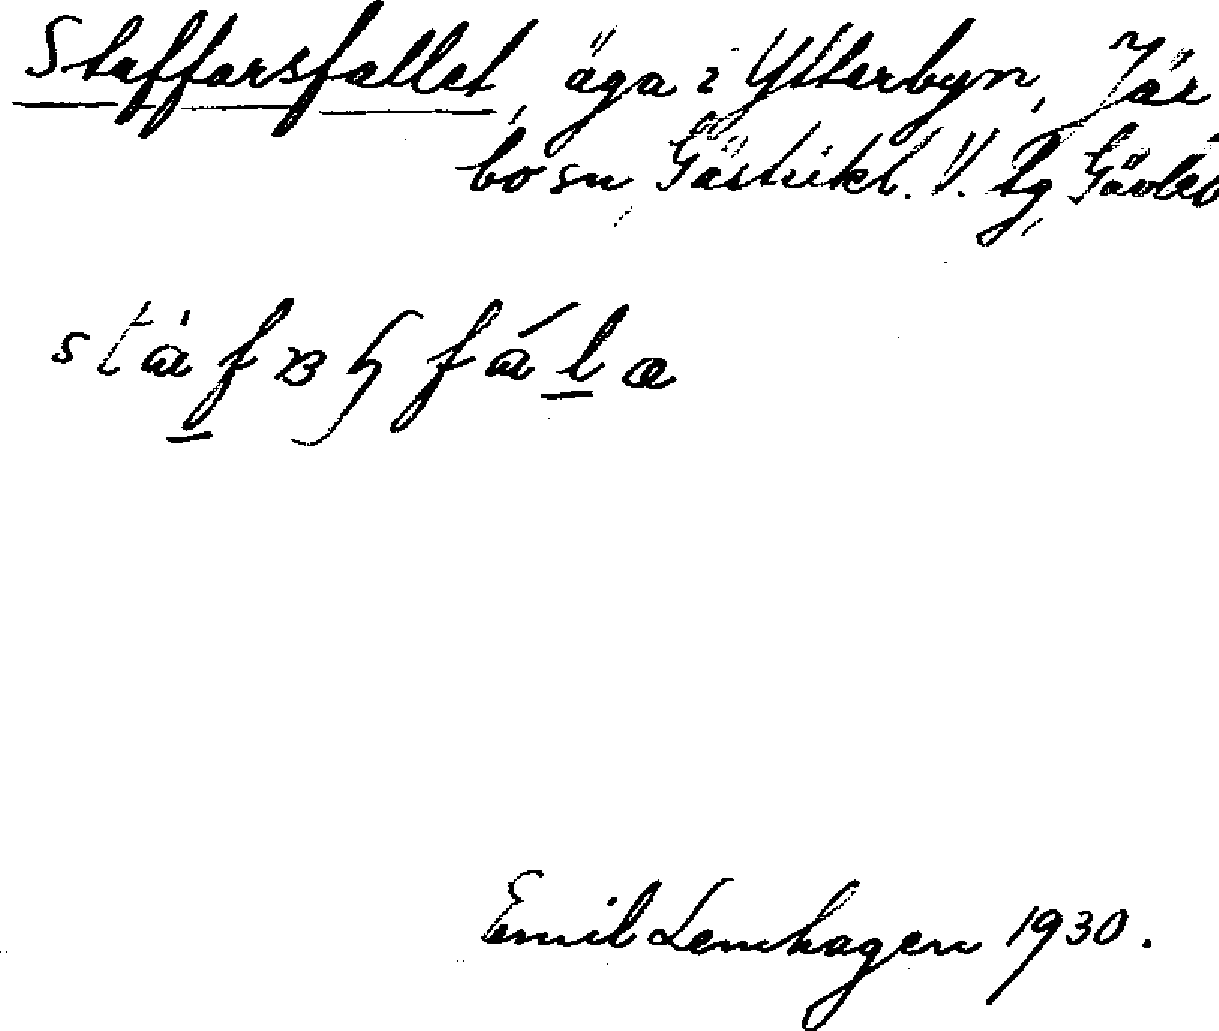 Staffarsfallet, äga i Ytterbyn, Jär
bo sn, Gästrikl. V. tg, Gävleb
Emil Lemhagen 1930.